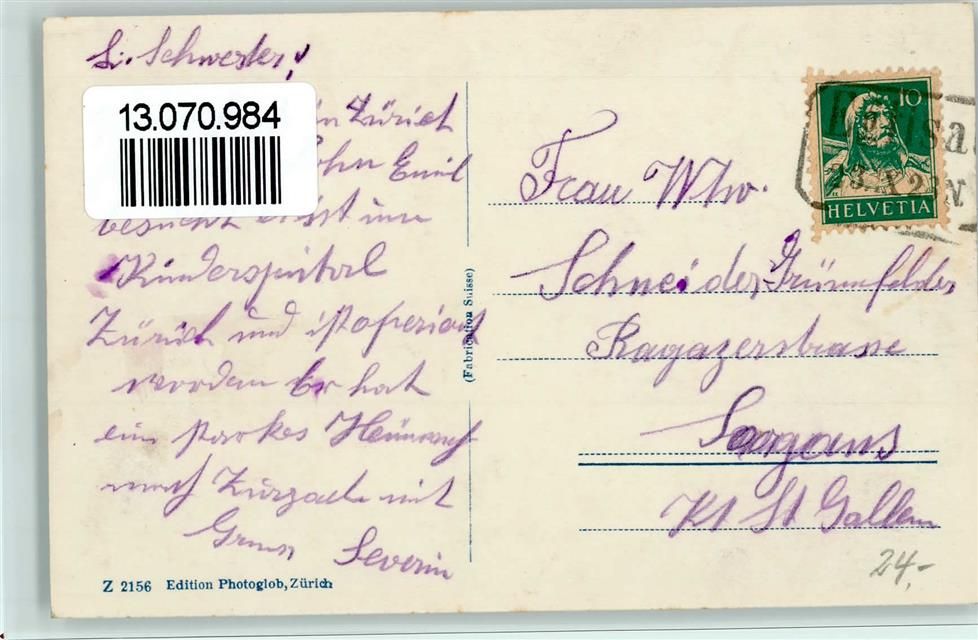 L. Schwester!
13.070.984
in Zürich
Sohn Emil
besucht er ist im
Kinderspital
Zürich und ist operiert
worden Er hat
ein starkes Heimweh
nach Zurzach mit
Gruss Severin
Z 2156 Edition Photoglob, Zürich
(Fabrication Suisse)
10
HELVETIA
Frau Wtw.
Schneider, Grünenfelder
Ragazerstrasse
Sargans
Kt St Gallen
24.-